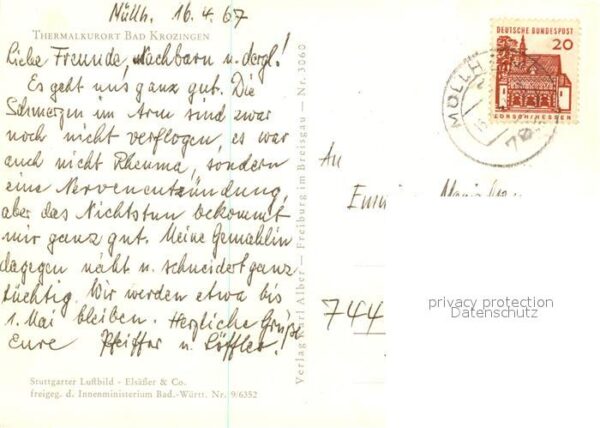 Müllh. 16.4.67
THERMALKURORT BAD KROZINGEN
Liebe Freunde, Nachbarn u. dergl!
Es geht uns ganz gut. Die
Schmerzen im Arm sind zwar
noch nicht verflogen, es war
auch nicht Rheuma, sondern
eine Nervenentzündung,
aber das Nichtstun bekommt
mir ganz gut. Meine Gemahlin
dagegen näht u. schneidert ganz
tüchtig. Wir werden etwa bis
1. Mai bleiben. Herzliche Grüße
Eure Pfeiffer u. Löffler!
Stuttgarter Luftbild - Elsäßer & Co.
freigeg. d. Innenministerium Bad.-Württ. Nr. 9/6352
Verlag Karl Alber — Freiburg im Breisgau — Nr. 3060
DEUTSCHE BUNDESPOST
20
LORSCH/HESSEN
MÜLLH
An
744
privacy protection
Datenschutz